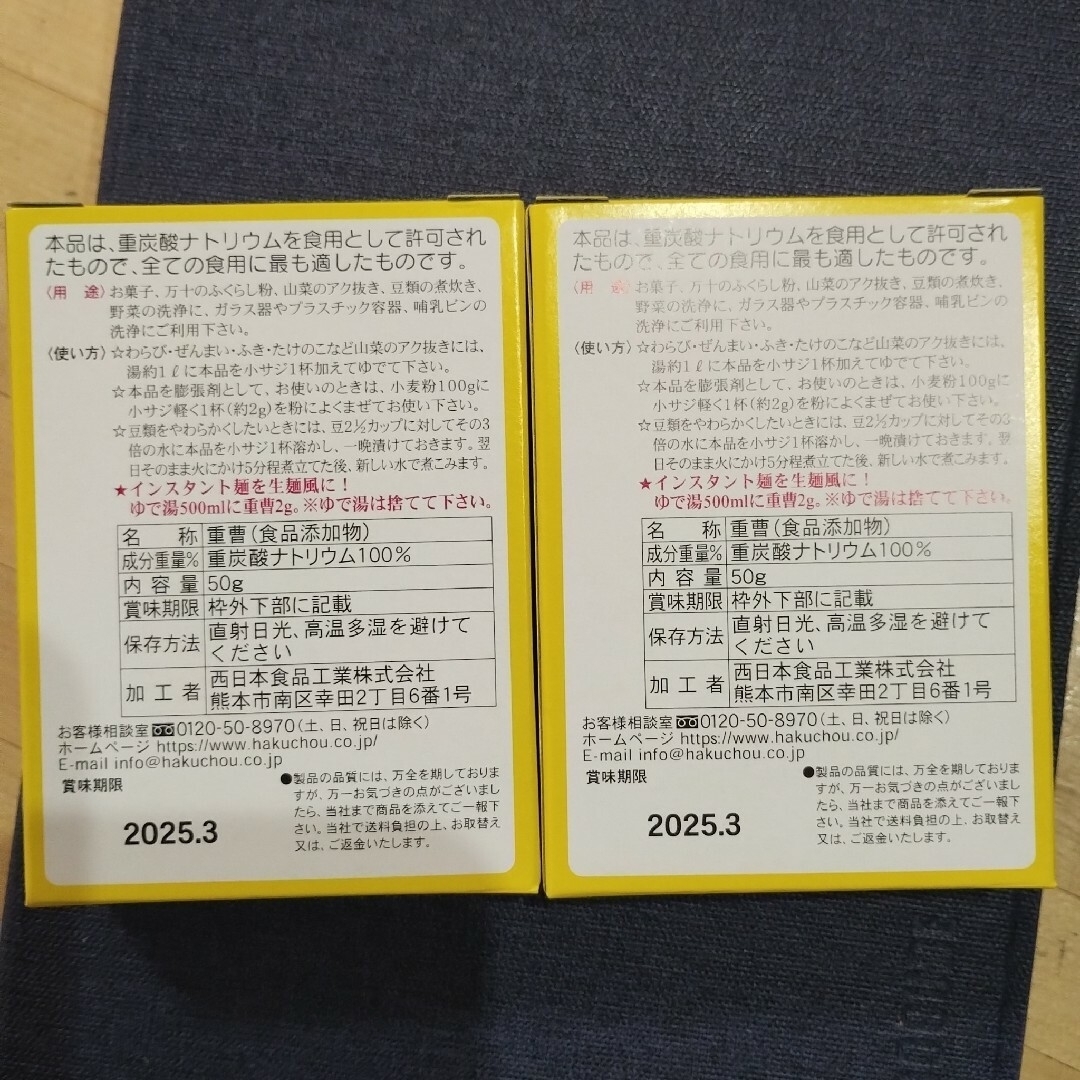 本品は、重炭酸ナトリウムを食用として許可され
たもので、全ての食用に最も適したものです。
〈用 途〉お菓子、万十のふくらし粉、山菜のアク抜き、豆類の煮炊き、
野菜の洗浄に、ガラス器やプラスチック容器、哺乳ビンの
洗浄にご利用下さい。
〈使い方〉☆わらび・ぜんまい・ふき・たけのこなど山菜のアク抜きには、
湯約1ℓに本品を小サジ1杯加えてゆでて下さい。
☆本品を膨張剤として、お使いのときは、小麦粉100gに
小サジ軽く1杯(約2g)を粉によくまぜてお使い下さい。
☆豆類をやわらかくしたいときには、豆2½カップに対してその3
倍の水に本品を小サジ1杯溶かし、一晩漬けておきます。翌
日そのまま火にかけ5分程煮立てた後、新しい水で煮こみます。
★インスタント麺を生麺風に!
ゆで湯500mlに重曹2g。※ゆで湯は捨てて下さい。
名 称 重曹(食品添加物)
成分重量% 重炭酸ナトリウム100%
内容量 50g
賞味期限 枠外下部に記載
保存方法 直射日光、高温多湿を避けて
ください
加工者 西日本食品工業株式会社
熊本市南区幸田2丁目6番1号
お客様相談室 0120-50-8970(土、日、祝日は除く)
ホームページ https://www.hakuchou.co.jp/
E-mail info@hakuchou.co.jp
賞味期限
2025.3
●製品の品質には、万全を期しておりま
すが、万一お気づきの点がございまし
たら、当社まで商品を添えてご一報下
さい。当社で送料負担の上、お取替え
又は、ご返金いたします。
本品は、重炭酸ナトリウムを食用として許可され
たもので、全ての食用に最も適したものです。
〈用 途〉お菓子、万十のふくらし粉、山菜のアク抜き、豆類の煮炊き、
野菜の洗浄に、ガラス器やプラスチック容器、哺乳ビンの
洗浄にご利用下さい。
〈使い方〉☆わらび・ぜんまい・ふき・たけのこなど山菜のアク抜きには、
湯約1ℓに本品を小サジ1杯加えてゆでて下さい。
☆本品を膨張剤として、お使いのときは、小麦粉100gに
小サジ軽く1杯(約2g)を粉によくまぜてお使い下さい。
☆豆類をやわらかくしたいときには、豆2½カップに対してその3
倍の水に本品を小サジ1杯溶かし、一晩漬けておきます。翌
日そのまま火にかけ5分程煮立てた後、新しい水で煮こみます。
★インスタント麺を生麺風に!
ゆで湯500mlに重曹2g。※ゆで湯は捨てて下さい。
名 称 重曹(食品添加物)
成分重量% 重炭酸ナトリウム100%
内容量 50g
賞味期限 枠外下部に記載
保存方法 直射日光、高温多湿を避けて
ください
加工者 西日本食品工業株式会社
熊本市南区幸田2丁目6番1号
お客様相談室 0120-50-8970(土、日、祝日は除く)
ホームページ https://www.hakuchou.co.jp/
E-mail info@hakuchou.co.jp
賞味期限
2025.3
●製品の品質には、万全を期しておりま
すが、万一お気づきの点がございまし
たら、当社まで商品を添えてご一報下
さい。当社で送料負担の上、お取替え
又は、ご返金いたします。